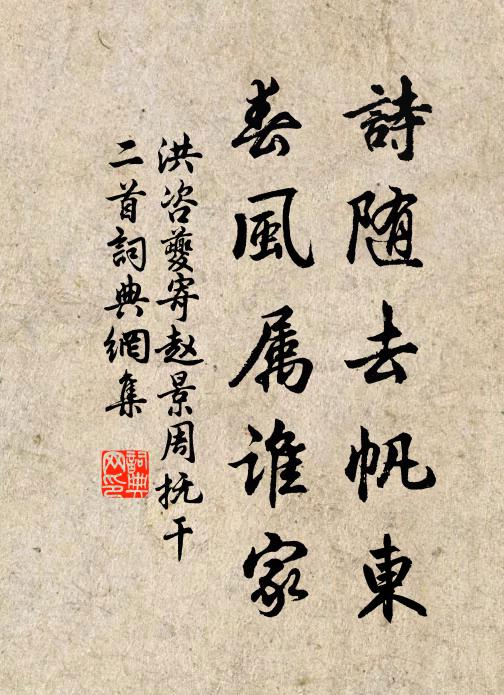 詩随去帆東
春風属谁家
洪咨夔寄赵景周抚干
二首詞典網集
詞典
网印